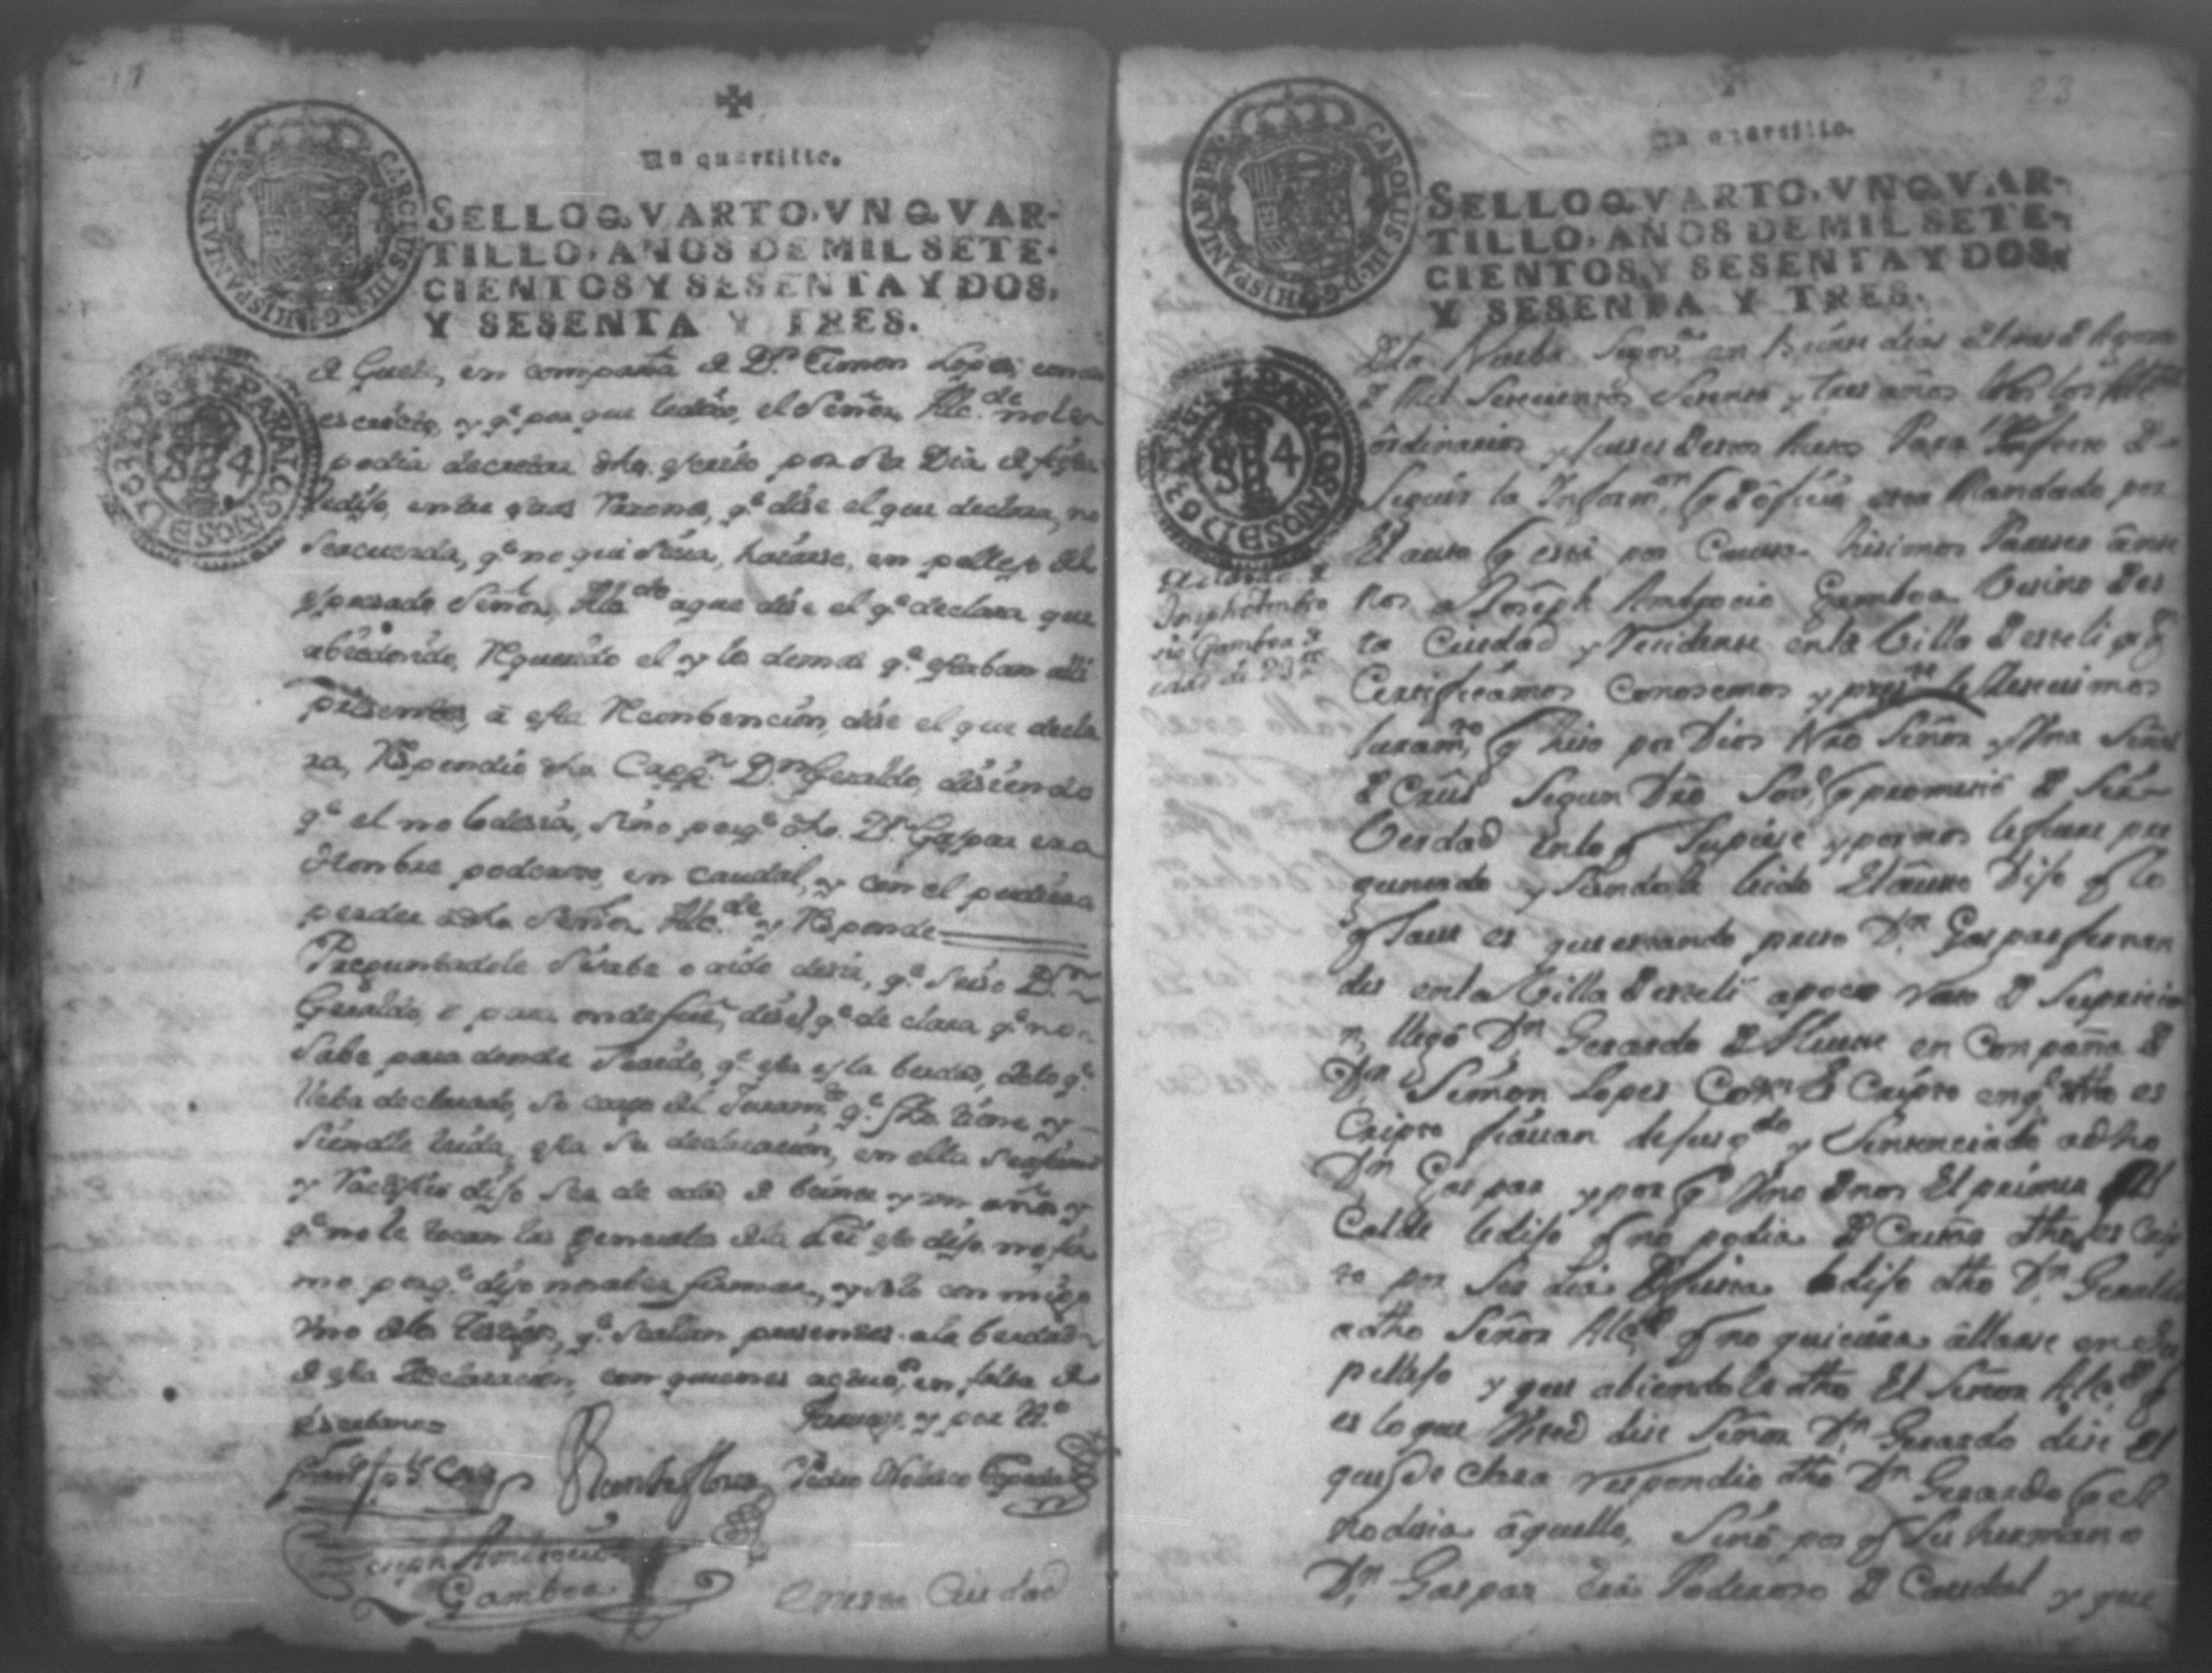 17
Un quartillo.
SELLO QVARTO, VN QVAR-
TILLO, AÑOS DE MIL SETE-
CIENTOS Y SESENTA Y DOS,
Y SESENTA Y TRES.
CAROLUS III D G HISPANIAR REX
PARA LOS AÑOS DE 1763 Y 64
en compañia de Dn. Simon Lopes, con un
escripto, y qe. por que el Señor Alcde. no le
podia decretar dho. escrito por ser Dia de fiesta
ledijo, entre otras razones, qe. dise el que declara, no
seacuerda, qe. no qui siera, hallarse, en pellejo del
espresado Señor, Alcde. aque dise el qe. declara que
el y los demas qe. estaban alli
presentes, a esta Reconbencion, dise el que decla
ra, Respondio dho Cappn. Dn. Geraldo, disiendo
qe. el no lodesia, sino porqe. dho. Dn. Gaspar era
Hombre poderoso, en caudal, y con el pudiera
perder adho Señor Alcde. y Responde
Preguntadole Sisabe o aido desir, qe. se iso Dn.
Geraldo, o para onde fue, dise el qe. de clara qe. no
Sabe para donde qe. esta es la berdad, delo qe.
lleba declarado, so cargo del Juramto. qe. fho tiene y
siendole leida, esta su declaracion, en ella se afirmo
y ratifico dijo ser de edad de beinte y un años y
qe. no le tocan las generales dela Lei esto dijo no fir
mo porqe. dijo nosaber firmar, y solo con migo
uno delos testigos, qe. se allan presentes ala berdad
de esta Declaracion, con quienes actuo, en falta de
Escribano
Vicente Flores Pedro Nolasco Cepeda
Joseph Ambrocio
Gamboa
En esta Ciudad
23
Un quartillo.
SELLO QVARTO, VN QVAR-
TILLO, AÑOS DE MIL SETE-
CIENTOS Y SESENTA Y DOS,
Y SESENTA Y TRES.
CAROLUS III D G HISPANIAR REX
PARA LOS AÑOS DE 1763 Y 64
Dela Nueba Segova. en dias del mes de Agosto
de Mil Setecientos Sesenta y tres años Nos los Alcdes.
ordinarios y Jueses Desta Para Efecto De
Seguir la Informon. q De oficio esta Mandado por
El auto q esta por Cavesa hisimos Pareser ante
nos a Joseph Ambrocio Gamboa Vesino Des
ta Ciudad y Residente enla Villa Desteli a q
Certificamos Conosemos y preste. le Resevimos
Juramto. q hiso por Dios Nro Señor y Una Señal
De Crus Segun Dro q prometio De Sir
Verdad enlo q Supiere y por nos lefuere pre
guntado y Siendole leido El auto Dijo q lo
q Save es que estando preso Dn. Gaspar fernan
des enla Villa Desteli apoco rato De Su pricio
n, llegó Dn. Gerardo De en Conpaña De
Dn. Simon Lopes Con Escripto
Cripto y Sentenciado adho
Dn. Gaspar y por q Uno Denos El primer Al
Calde ledijo q no podia De Cretar dho es Crip
to por Ser dia De fiesta ledijo dho Dn. Geraldo
a dho Señor Alcde. q no quiciera allarse en Su
pellejo y que abiendole dho El Señor Alcde. q
es lo que Umd dise Señor Dn. Gerardo dise El
que de Clara respondio dho Dn. Gerardo q el
nodesia aquello, Sino por q Su hermano
Dn. Gaspar Era Poderoso De Caudal y que
Declaron. de
Joseph Ambro
sio Gamboa de
edad de 23 as.